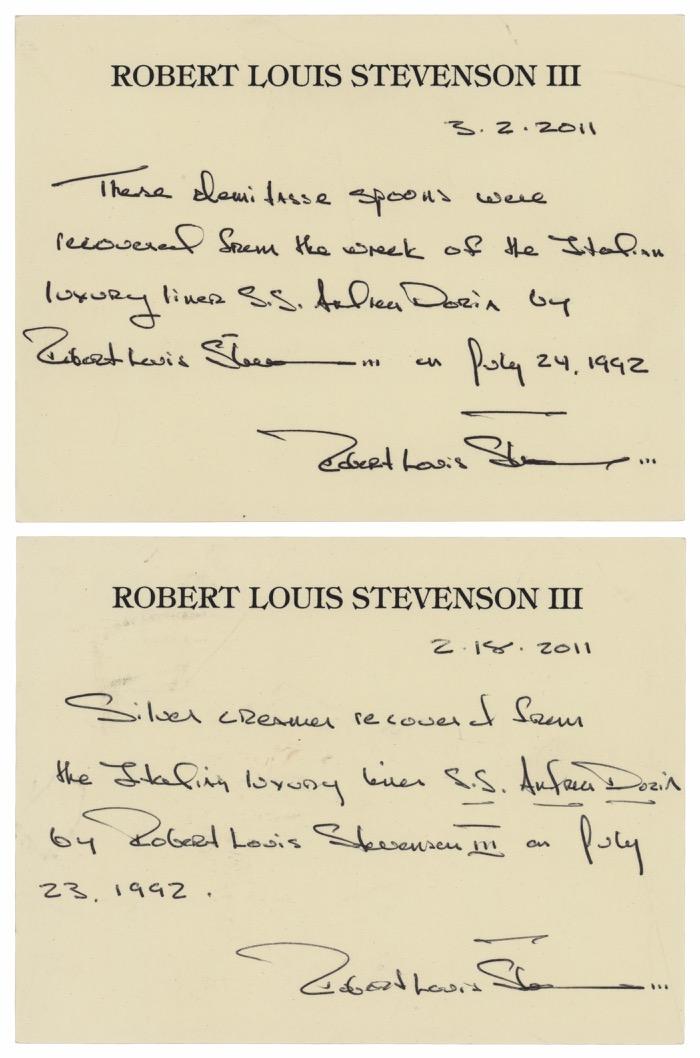 ROBERT LOUIS STEVENSON III
3.2.2011
These demitasse spoons were
recovered from the wreck of the Italian
luxury liner S.S. Andrea Doria by
Robert Louis Stevenson III on July 24, 1992
Robert Louis Stevenson III
ROBERT LOUIS STEVENSON III
2.18.2011
Silver creamer recovered from
the Italian luxury liner S.S. Andrea Doria
by Robert Louis Stevenson III on July
23, 1992.
Robert Louis Stevenson III